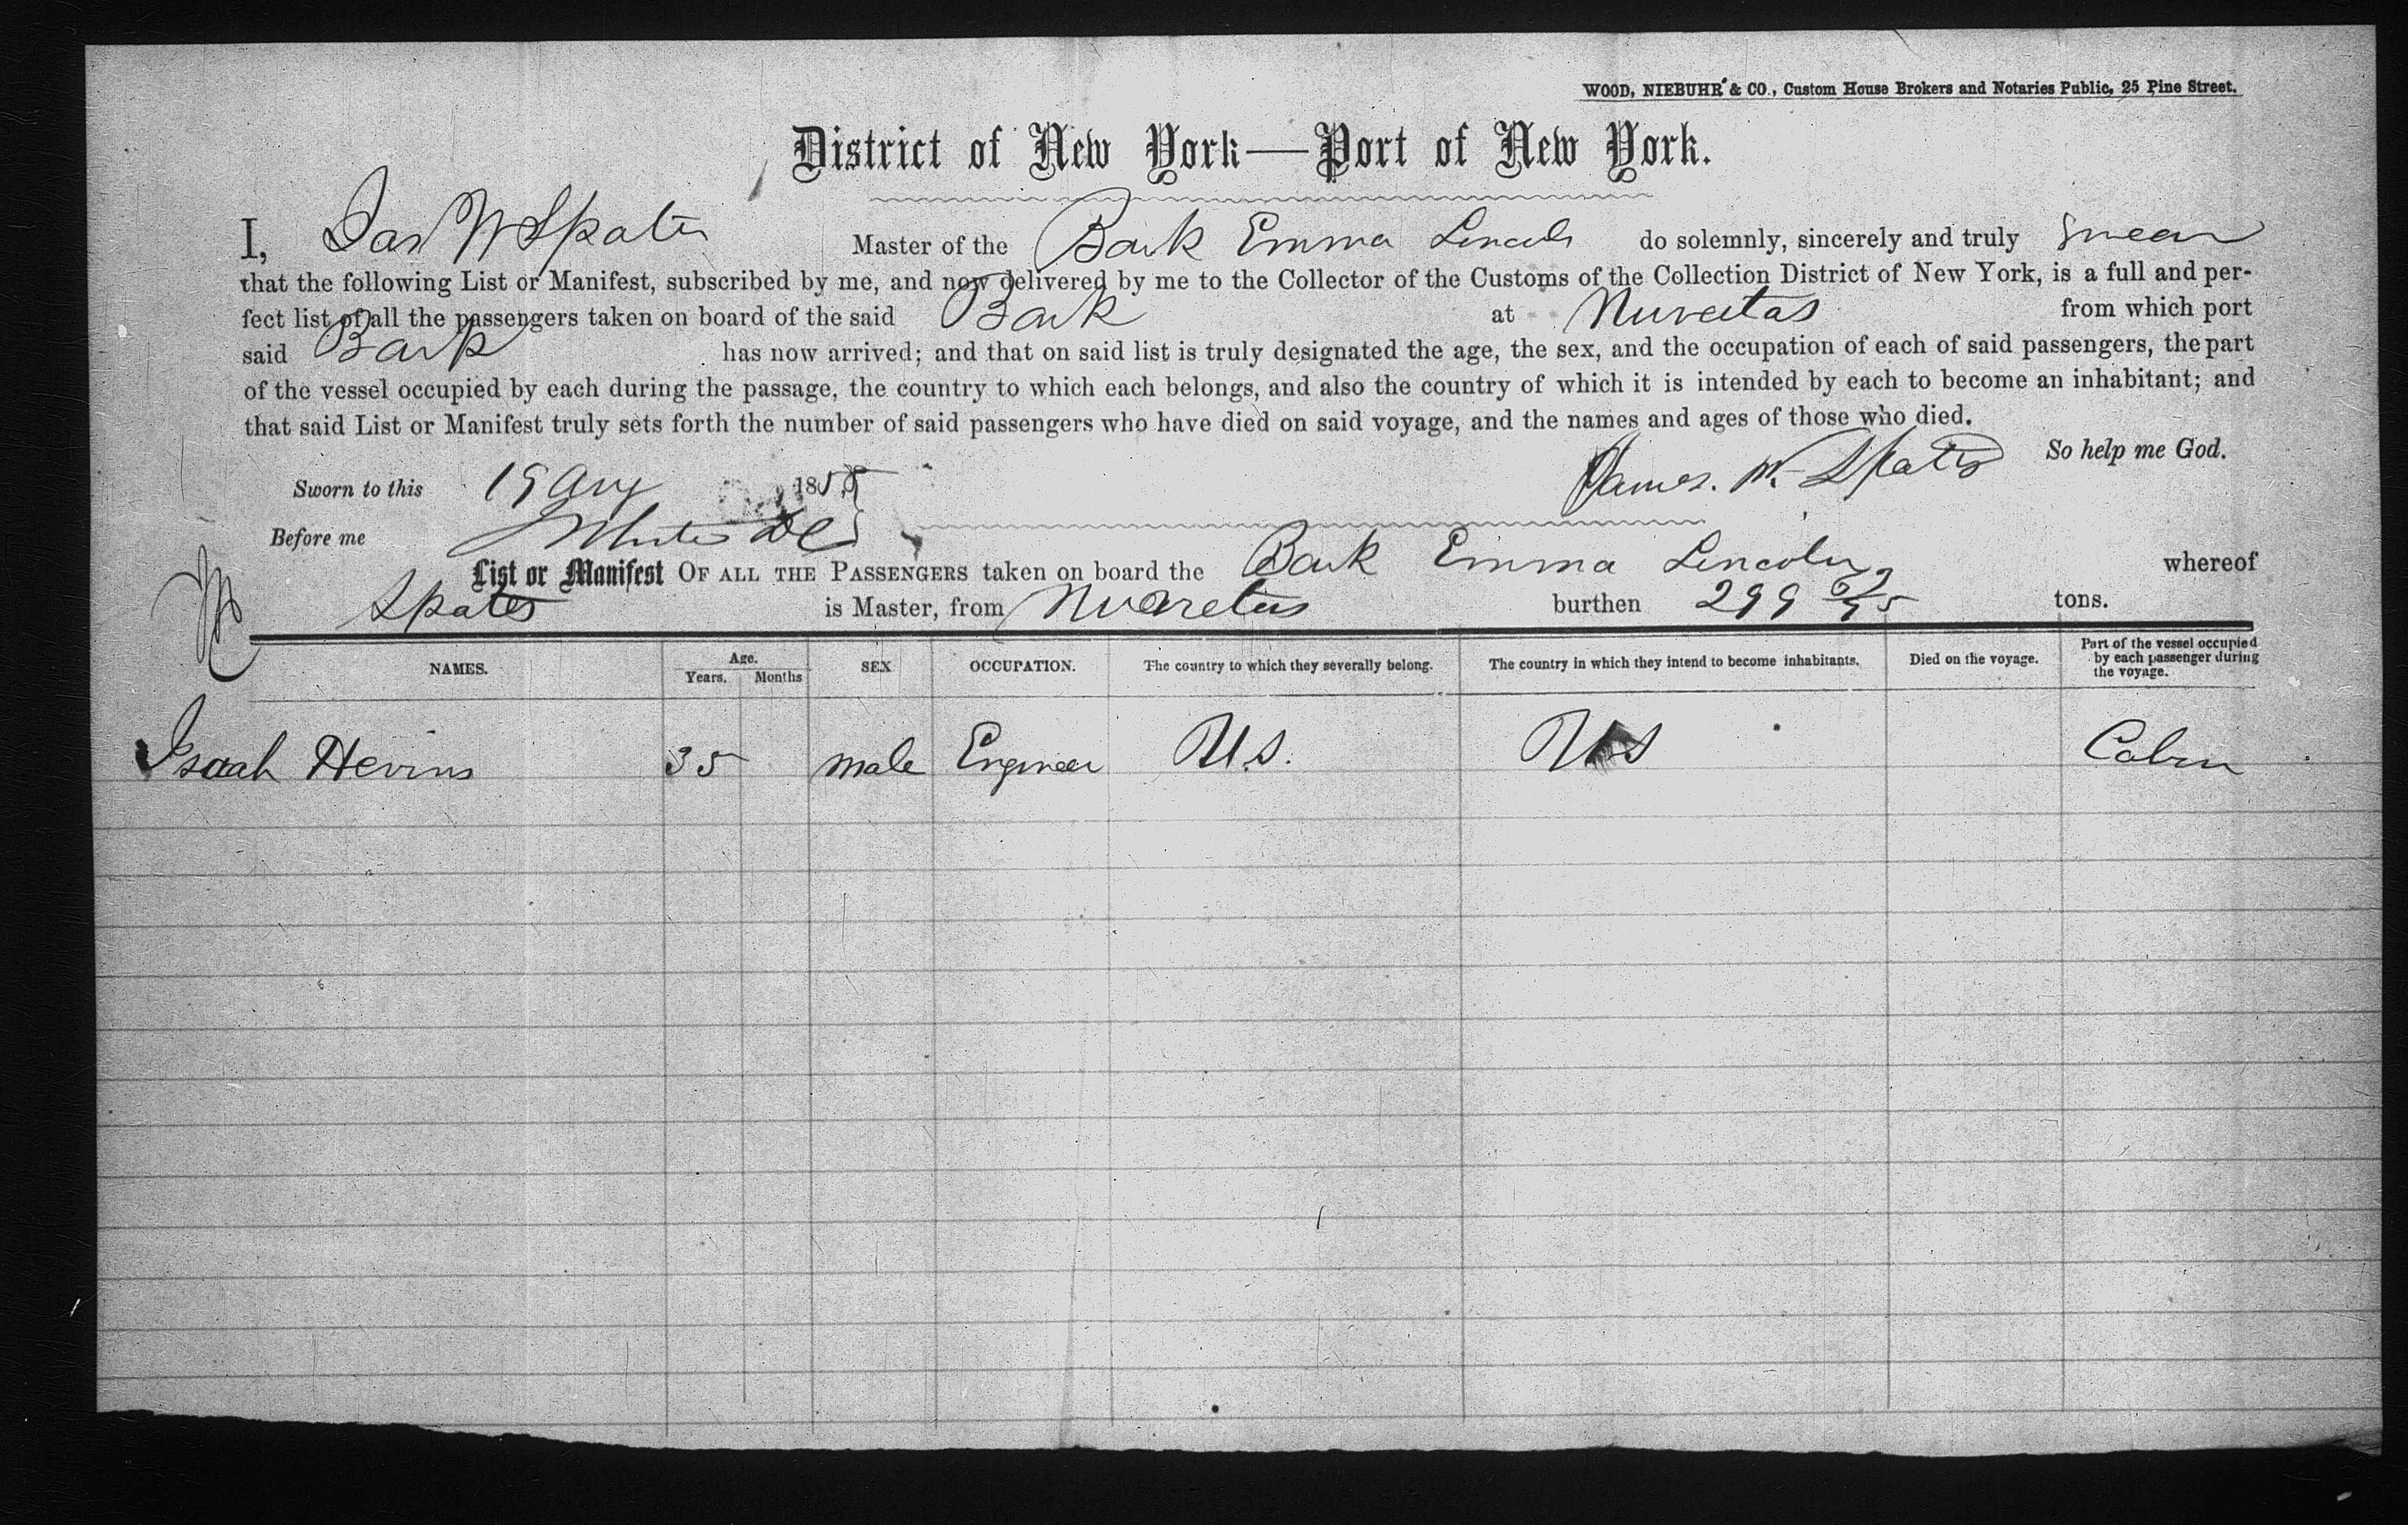 WOOD, NIEBUHR & CO., Custom House Brokers and Notaries Public, 25 Pine Street.
District of New York—Port of New York.
I, Jas W Spates Master of the Bark Emma Lincoln do solemnly, sincerely and truly swear
that the following List or Manifest, subscribed by me, and now delivered by me to the Collector of the Customs of the Collection District of New York, is a full and per-
fect list of all the passengers taken on board of the said Bark at Nuveitas from which port
said Bark has now arrived; and that on said list is truly designated the age, the sex, and the occupation of each of said passengers, the part
of the vessel occupied by each during the passage, the country to which each belongs, and also the country of which it is intended by each to become an inhabitant; and
that said List or Manifest truly sets forth the number of said passengers who have died on said voyage, and the names and ages of those who died.
So help me God.
Sworn to this 19 Aug 1858 James. W. Spates
Before me
List or Manifest OF ALL THE PASSENGERS taken on board the Bark Emma Lincoln whereof
Spates is Master, from burthen 299 tons.
NAMES. Age. Years. Months SEX OCCUPATION. The country to which they severally belong. The country in which they intend to become inhabitants. Died on the voyage. Part of the vessel occupied by each passenger during the voyage.
Isaah Hevins 35 male Engineer U.S. US Cabin